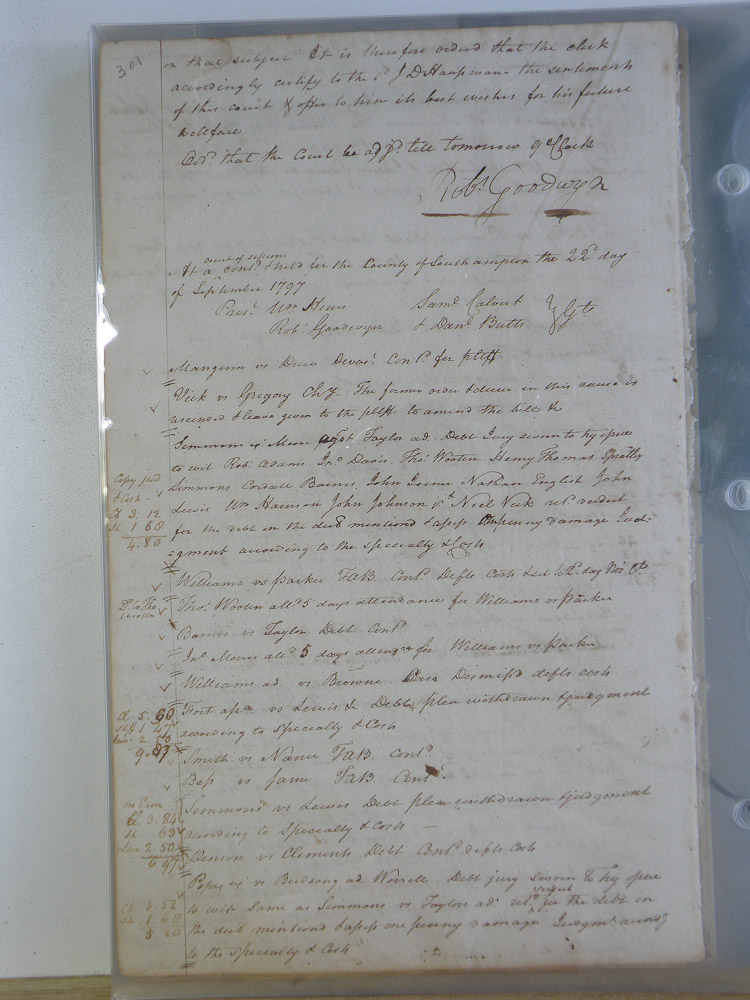 301
on that subject It is therefore ordered that the clerk
accordingly certify to the sd J D Haussmann the sentiments
of this court & offer to him its best wishes for his future
wellfare
Ord. that the Court be adjd. till tomorrow 9 oClock
Robt Goodwyn
court of sessions
At a contd. & held for the County of Southampton the 22d day
of September 1797
Prest. Wm Hines Saml Calvert
Robt Goodwyn & Danl Butts } Gts
Mangum vs Decr Devast. Contd for pltff
Vick vs Gregory Chy. The former order & decree in this cause is
rescinded & leave given to the pltfs to amend the bill &c
Simmons vs Taylor ad. Debt Jury sworn to try issue
to wit Rob. Adams Jno Davis Tho. Wooten Henry Thomas Spratly
Simmons Cordall Barnes John Joiner Nathan English John
Lewis Wm Harrison John Johnson & Noel Vick retd. verdict
for the debt in the decl mentiond & assess one penny damage Jud-
gment according to the specialty & Costs
Copy pd
& Cost
Cl 3.12
Sh 1.68
4.80
Williams vs Parker TAB. Contd Defts Costs & set to 2d. day
Tho. Wooten alld 5 days attendance for Williams vs Parker
Barnes vs Taylor Debt Contd
Jno. Morris alld. 5 days attend for Williams vs Parker
Williams ad. vs Browne Dismissd defts costs
Fort vs Lewis & Debt plea withdrawn & judgment
according to specialty & Costs
Cl 5.
Shf 1 47
2 50
9.
Smith vs Nairne TAB. Contd.
Bass vs same TAB Contd
Simmons vs Lewis Debt plea withdrawn & judgment
according to Specialty & Costs
Cl 3.84
Sh 63
Law 2 50
6 97
Benson vs Clements Debt Contd defts Costs
vs Birdsong ad. Worrell Debt jury sworn to try issue
verdict
to wit Same as Simmons vs Taylors ad. retd. for the debt in
the decl mentiond & assess one penny damage Judgmt accordg
to the specialty & Costs
Cl 3.52
Sh 1.68
5 20